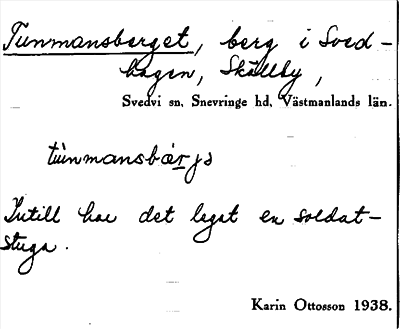 Tunmansberget, berg i Sved-
hagen, Skälby,
Svedvi sn, Snevringe hd, Västmanlands län.
tùnmansbärjə
Intill har det legat en soldat-
stuga.
Karin Ottosson 1938.